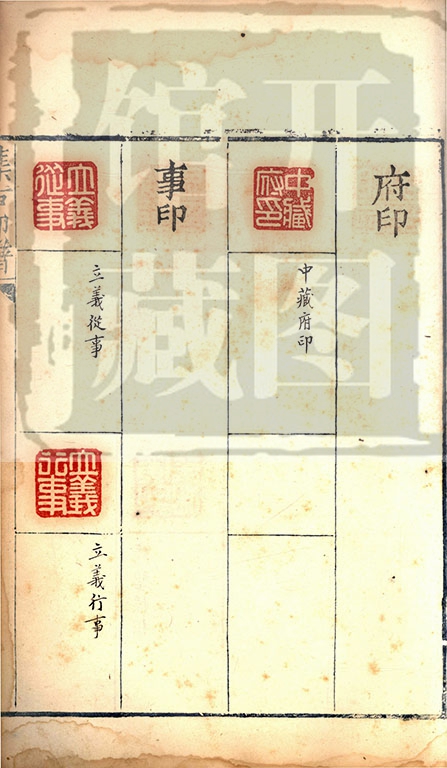 府印
中藏府印
中藏府印
事印
立義從事
立義從事
立義行事
立義行事
集古印譜
开图
馆藏